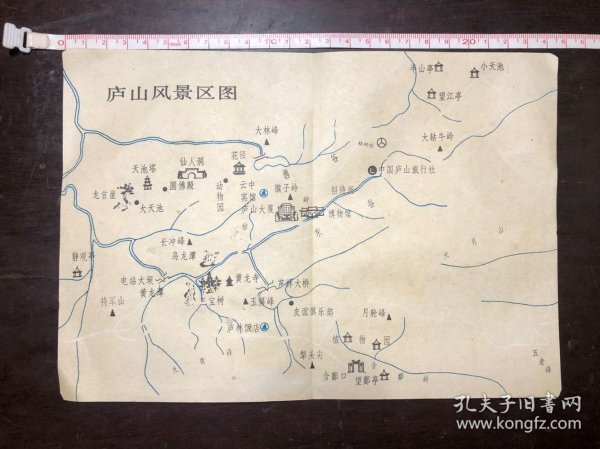 庐山风景区图
半山亭
小天池
望江亭
大林峰
牯岭街
大牯牛岭
仙人洞
花径
天池塔
圆佛殿
中国庐山旅行社
龙首崖
大天池
动物园
云中宾馆
猴子岭
招待所
庐山大厦
博物馆
西
谷
东
谷
长冲峰
乌龙潭
静观亭
大月山
电站大坝
黄龙潭
黄龙寺
芦林大桥
待车山
三宝树
玉屏峰
友谊俱乐部
月轮峰
庐林饭店
植物园
犁头尖
含鄱口
望鄱亭
含鄱岭
五老峰
孔夫子旧书网
www.kongfz.com